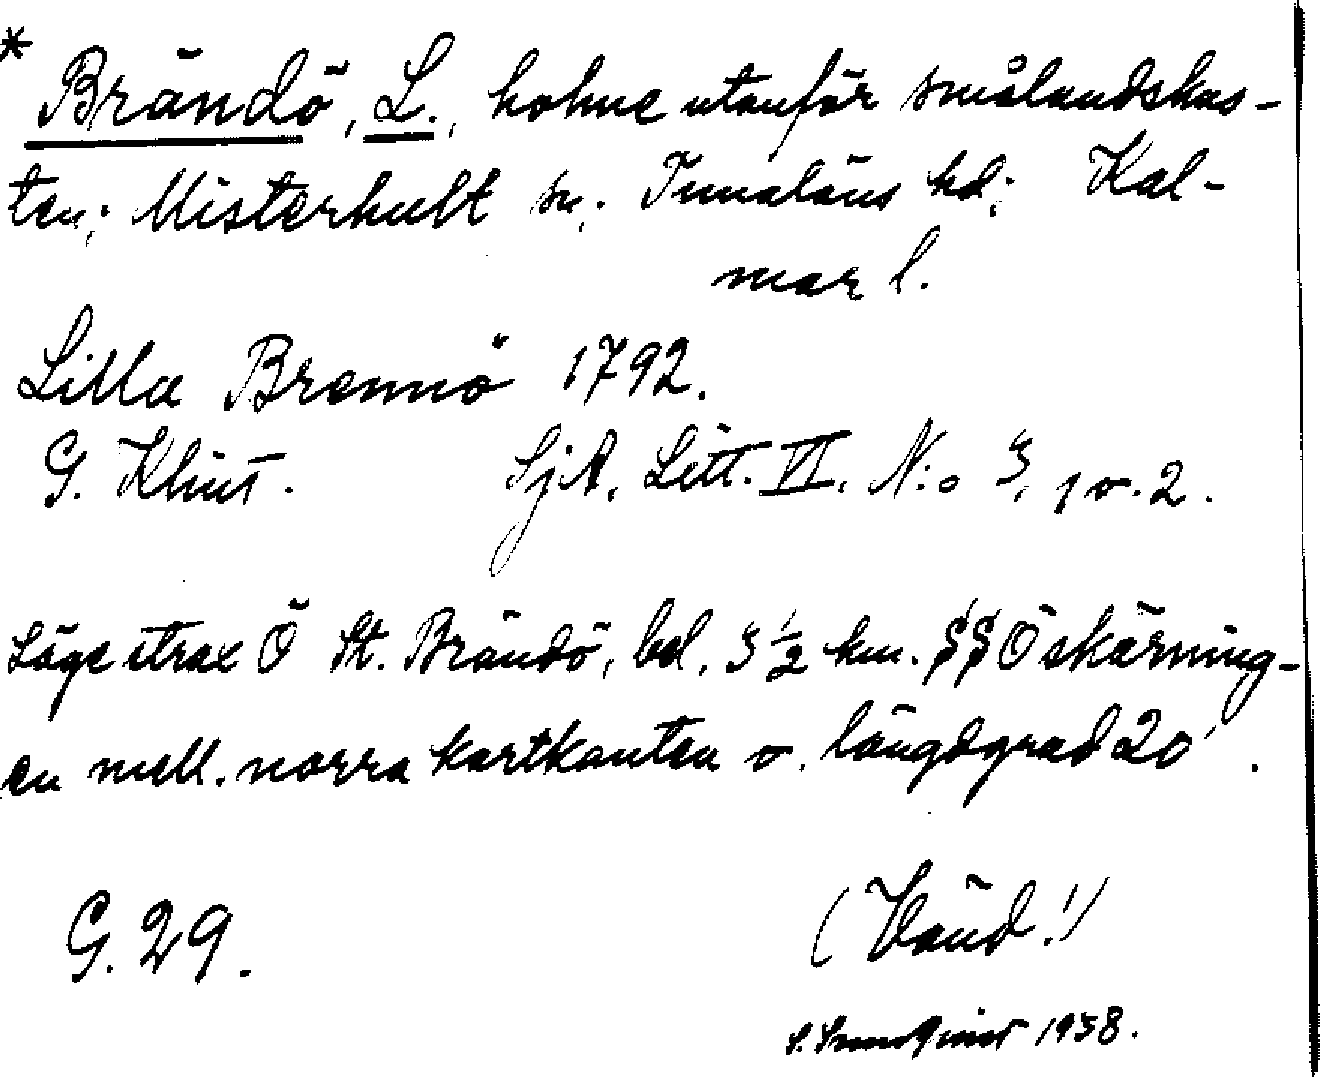 * Brändö, L., holme utanför smålandskus-
ten; Misterhult sn. Tunaläns hd; Kal-
mar l.
Lilla Brennö 1792.
G. Klint. SjA, Litt. VI. N:o 3, 1 o. 2.
Läge strax Ö St. Brändö, bel. 3 1/2 km. SSÖ skärning-
en mell. norra kartkanten o. längdgrad 20'.
G. 29.
(Vänd!)
1938.